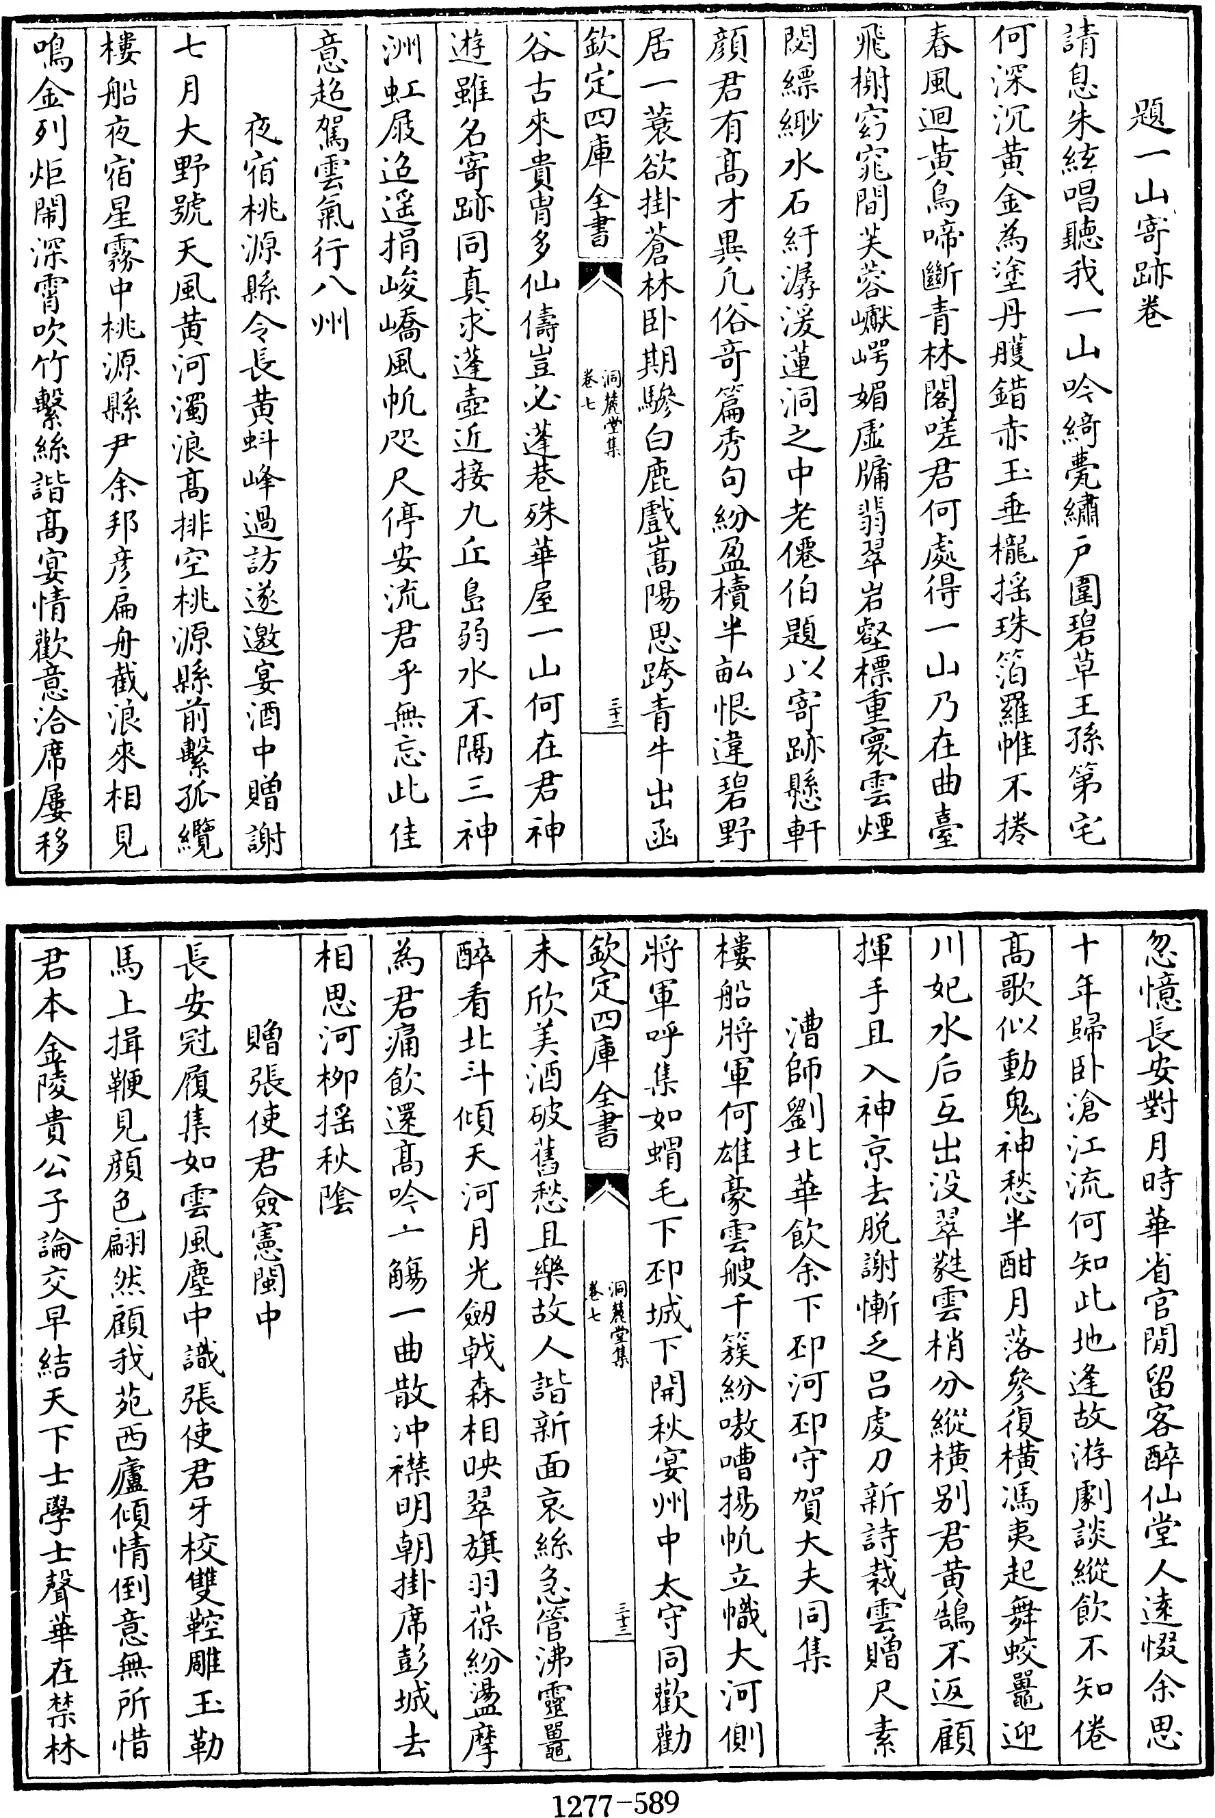 題一山寄跡卷
請息朱絃唱聽我一山吟綺甍繡戶圍碧草王孫第宅
何深沉黃金為塗丹雘錯赤玉垂櫳搖珠箔羅帷不捲
春風迴黃鳥啼斷青林閣嗟君何處得一山乃在曲臺
飛榭窈窕間芙蓉巘崿媚虛牖翡翠岩壑標重寰雲煙
閃縹緲水石紆潺湲蓮洞之中老僊伯題以寄跡懸軒
顏君有高才異凡俗奇篇秀句紛盈櫝半畝恨違碧野
居一蓑欲掛蒼林卧期驂白鹿戲嵩陽思跨青牛出函
欽定四庫全書
洞麓堂集
卷七
三十二
谷古來貴胄多仙儔豈必蓬巷殊華屋一山何在君神
遊雖名寄跡同真求蓬壺近接九丘島弱水不隔三神
洲虹屐迢遥捐峻嶠風帆咫尺停安流君乎無忘此佳
意超駕雲氣行八州
夜宿桃源縣令長黃蚪峰過訪遂邀宴酒中贈謝
七月大野號天風黃河濁浪高排空桃源縣前繫孤纜
樓船夜宿星霧中桃源縣尹余邦彦扁舟截浪來相見
鳴金列炬鬧深霄吹竹繫絲諧高宴情歡意洽席屢移
忽憶長安對月時華省官閒留客醉仙堂人遠惙余思
十年歸卧滄江流何知此地逢故游劇談縱飲不知倦
高歌似動鬼神愁半酣月落參復橫馮夷起舞蛟鼉迎
川妃水后互出没翠蕤雲梢分縱橫别君黃鵠不返顧
揮手且入神京去脱謝慚乏吕虔刀新詩裁雲贈尺素
漕師劉北華飲余下邳河邳守賀大夫同集
樓船將軍何雄豪雲艘千簇紛嗷嘈揚帆立幟大河側
將軍呼集如蝟毛下邳城下開秋宴州中太守同歡勸
欽定四庫全書
洞麓堂集
卷七
三十三
未欣美酒破舊愁且樂故人諧新面哀絲急管沸靈鼉
醉看北斗傾天河月光劒戟森相映翠旗羽葆紛盪摩
為君痛飲還高吟一觴一曲散冲襟明朝掛席彭城去
相思河柳搖秋陰
贈張使君僉憲閩中
長安冠履集如雲風塵中識張使君牙校雙鞚雕玉勒
馬上揖鞭見顔色翩然顧我苑西廬傾情倒意無所惜
君本金陵貴公子論交早結天下士學士聲華在禁林
1277-589